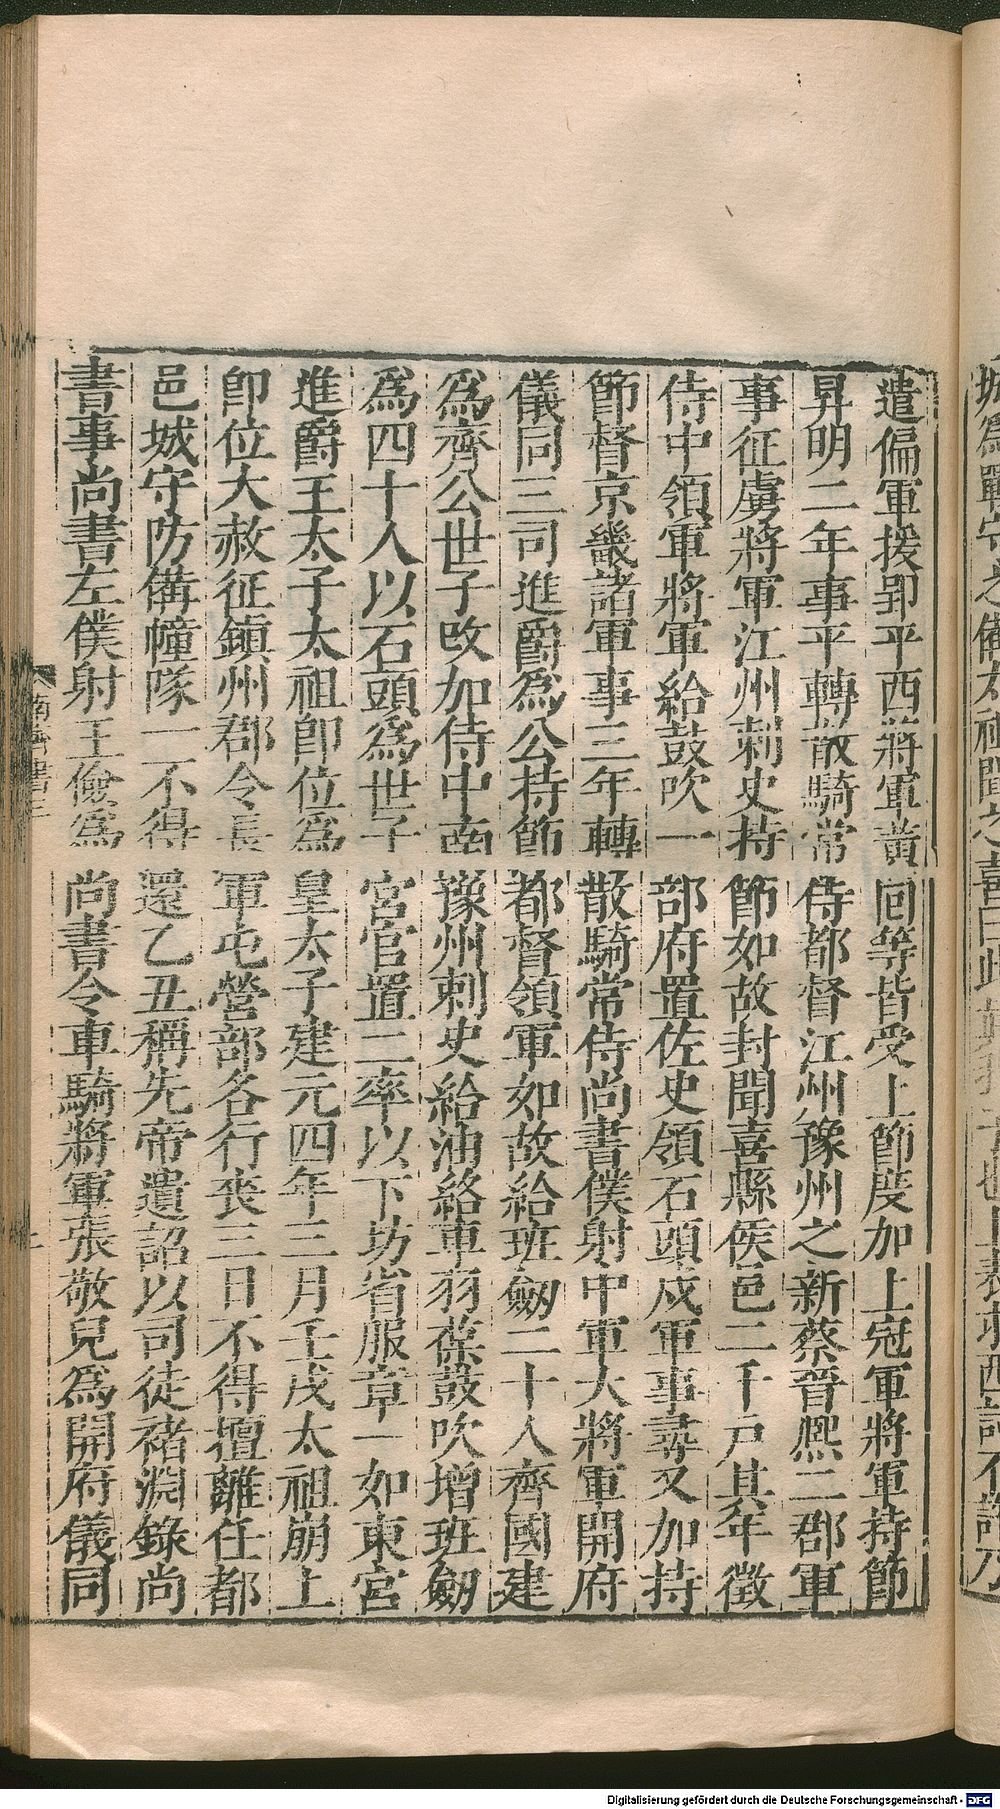 遣偏軍援郢平西將軍黃回等皆受上節度加上冠軍將軍持節
昇明二年事平轉散騎常侍都督江州豫州之新蔡晉熙二郡軍
事征虜將軍江州刺史持節如故封聞喜縣侯邑二千戶其年徵
侍中領軍將軍給鼓吹一部府置佐史領石頭戍軍事尋又加持
節督京畿諸軍事三年轉散騎常侍尚書僕射中軍大將軍開府
儀同三司進爵爲公持節都督領軍如故給班劒二十人齊國建
爲齊公世子改加侍中南豫州刺史給油絡車羽葆鼓吹增班劒
爲四十人以石頭爲世子宮官置二率以下坊省服章一如東宮
進爵王太子太祖卽位爲皇太子建元四年三月壬戌太祖崩上
卽位大赦征鎮州郡令長軍屯營部各行喪三日不得擅離任都
邑城守防備幢隊一不得還乙丑稱先帝遺詔以司徒褚淵錄尚
書事尚書左僕射王儉爲尚書令車騎將軍張敬兒爲開府儀同
南齊書三
Digitalisierung gefördert durch die Deutsche Forschungsgemeinschaft - DFG